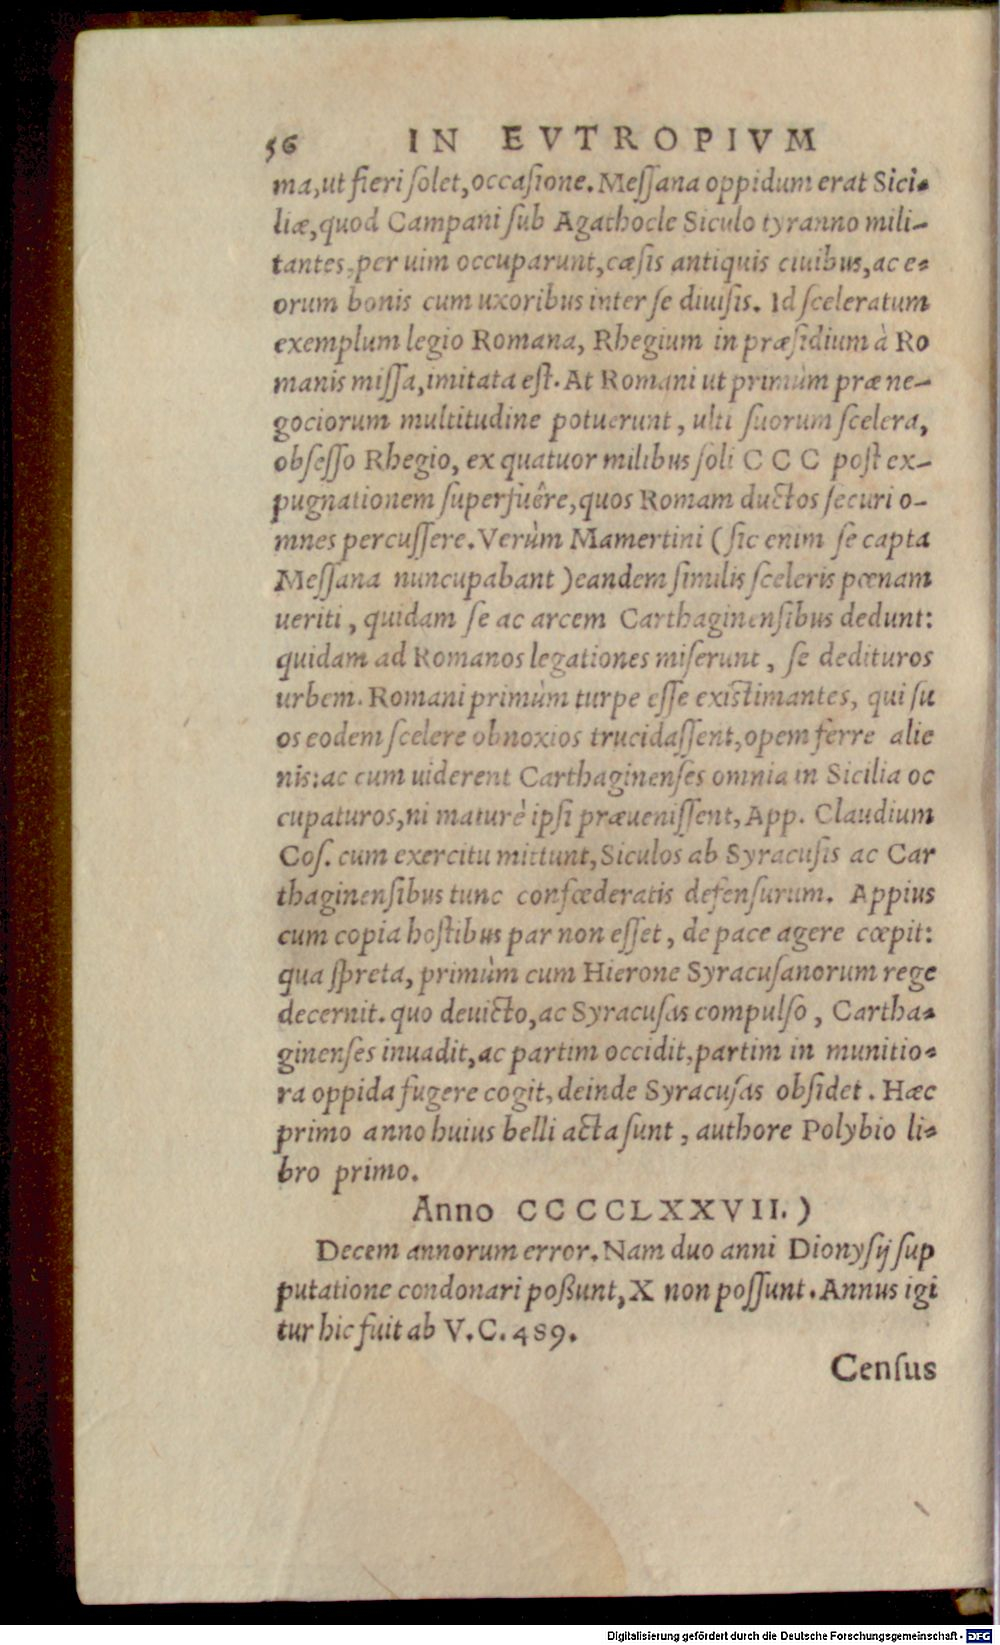 56 IN EVTROPIVM
ma, ut fieri ſolet, occaſione. Meſſana oppidum erat Sici-
liæ, quod Campani ſub Agathocle Siculo tyranno mili-
tantes, per uim occuparunt, cæſis antiquis ciuibus, ac e-
orum bonis cum uxoribus inter ſe diuiſis. Id ſceleratum
exemplum legio Romana, Rhegium in præſidium à Ro
manis miſſa, imitata eſt. At Romani ut primùm præ ne-
gociorum multitudine potuerunt, ulti ſuorum ſcelera,
obſeſſo Rhegio, ex quatuor milibus ſoli C C C poſt ex-
pugnationem ſuperfuêre, quos Romam ductos ſecuri o-
mnes percuſſere. Verùm Mamertini (ſic enim ſe capta
Meſſana nuncupabant) eandem ſimilis ſceleris pœnam
ueriti, quidam ſe ac arcem Carthaginenſibus dedunt:
quidam ad Romanos legationes miſerunt, ſe dedituros
urbem. Romani primùm turpe eſſe exiſtimantes, qui ſu
os eodem ſcelere obnoxios trucidaſſent, opem ferre alie
nis: ac cum uiderent Carthaginenſes omnia in Sicilia oc
cupaturos, ni maturè ipſi præueniſſent, App. Claudium
Coſ. cum exercitu mittunt, Siculos ab Syracuſis ac Car
thaginenſibus tunc confœderatis defenſurum. Appius
cum copia hoſtibus par non eſſet, de pace agere cœpit:
qua ſpreta, primùm cum Hierone Syracuſanorum rege
decernit. quo deuicto, ac Syracuſas compulſo, Cartha-
ginenſes inuadit, ac partim occidit, partim in munitio-
ra oppida fugere cogit, deinde Syracuſas obſidet. Hæc
primo anno huius belli acta ſunt, authore Polybio li-
bro primo.
Anno CCCCLXXVII.)
Decem annorum error. Nam duo anni Dionyſij ſup
putatione condonari poßunt, X non poſſunt. Annus igi
tur hic fuit ab V.C. 489.
Cenſus
Digitalisierung gefördert durch die Deutsche Forschungsgemeinschaft - DFG